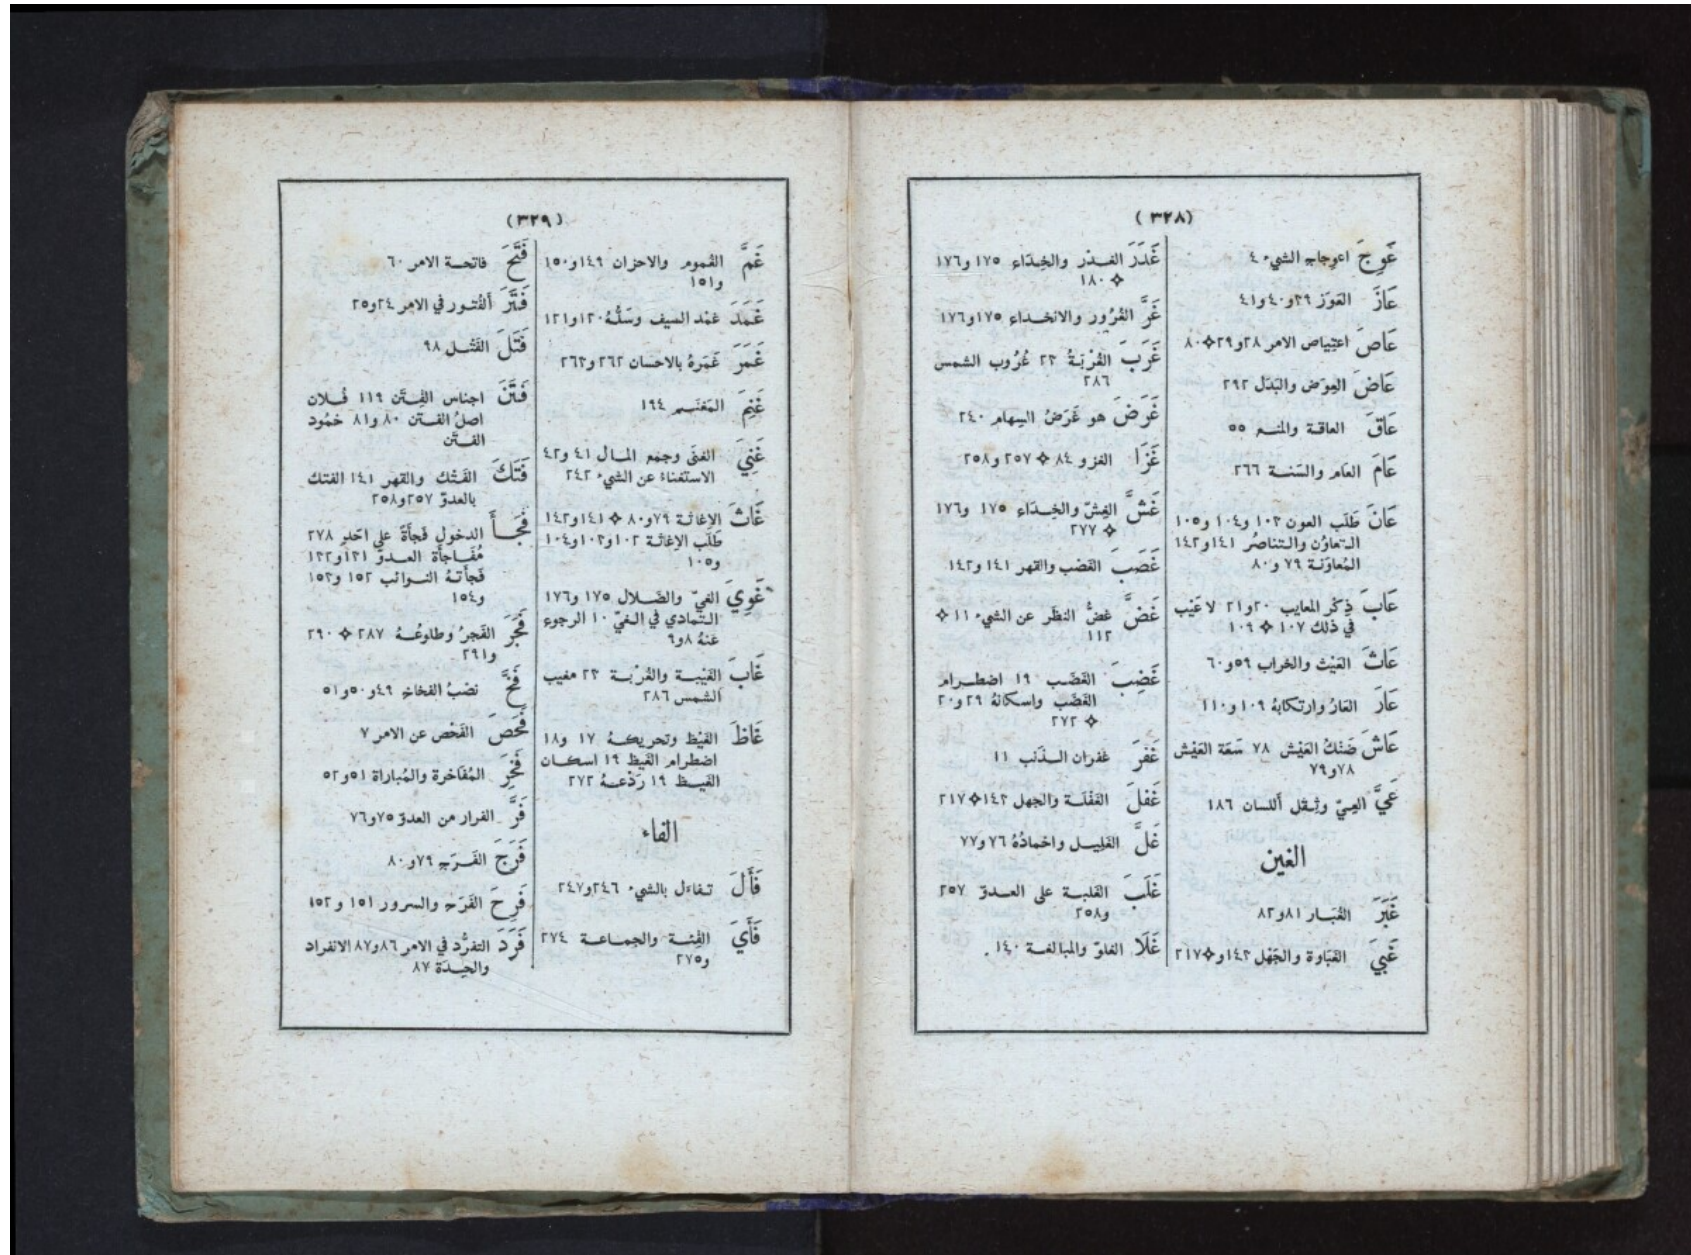 (٣٢٨)
عَوِجَ اعوجاج الشيء ٤
عَازَ العَوَز ٣٩ و٤٠ و٤١
عَاصَ اعتِياص الامر ٢٨ و٢٩ ✧ ٨٠
عَاضَ العِوَض والبَدَل ٢٩٢
عَاقَ العاقة والمنع ٥٥
عَامَ العَام والسَنـة ٢٦٦
عَانَ طَلَب العون ١٠٣ و١٠٤ و١٠٥
التعاوُن والتناصُر ١٤١ و١٤٢
المُعاوَنـة ٧٩ و٨٠
عَابَ ذِكر المعايب ٢٠ و٢١ لا عَيْب
في ذلك ١٠٧ ✧ ١٠٩
عَاثَ العَيْث والخراب ٥٩ و٦٠
عَارَ العَارُ وارتكابهُ ١٠٩ و١١٠
عَاشَ ضَنْكُ العَيْش ٧٨ سَعَة العَيْش
٧٨ و٧٩
عَيَّ العِيّ وثِقل أَللسان ١٨٦
الغين
غَبَرَ الغُبَـار ٨١ و٨٢
غَبِيَ الغَبَاوة والجَهْل ١٤٢ و✧٢١٧
غَدَرَ الغـدْر والخِدَاع ١٧٥ و١٧٦
✧ ١٨٠
غَرَّ الغُرُور والانخـداع ١٧٥ و١٧٦
غَرَبَ الغُرْبَةُ ٢٣ غُرُوب الشمس
٢٨٦
غَرَضَ هو غَرَضُ السِهام ٢٤٠
غَزَا الغزو ٨٤ ✧ ٢٥٧ و٢٥٨
غَشَّ الغِشّ والخِـدَاع ١٧٥ و١٧٦
✧ ٢٧٧
غَصَبَ الغَصْب والقهر ١٤١ و١٤٢
غَضَّ غضُّ النظَر عن الشيء ١١ ✧
١١٢
غَضِبَ الغَضَب ١٩ اضطـرام
الغَضَب واسكانهُ ٢٩ و٢٠
✧ ٢٧٢
غَفَرَ غفران الـذَنب ١١
غَفَلَ الغَفْلَـة والجهل ١٤٢ ✧ ٢١٧
غَلَّ الغَلِيـل واخمادُهُ ٧٦ و٧٧
غَلَبَ الغَلبـة على العـدوّ ٢٥٧
و٢٥٨
غَلَا الغلوّ والمبالغـة ١٤٠
(٣٢٩)
غَمَّ الغُموم والاحزان ١٤٩ و١٥٠
و١٥١
غَمَدَ غمْد السيف وسَلُّـهُ ١٢٠ و١٢١
غَمَرَ غَمَرهُ بالاحسان ٢٦٢ و٢٦٣
غَنِمَ المَغنَـم ١٩٤
غَنِيَ الغنَى وجمع المـال ٤١ و٤٢
الاستغناءَ عن الشيء ٢٤٢
غَاثَ الإغاثـة ٧٩ و٨٠ ✧ ١٤١ و١٤٢
طَلَب الإغاثَـة ١٠٢ و١٠٣ و١٠٤
و١٠٥
غَوِيَ الغيّ والضَلال ١٧٥ و١٧٦
التَّمادي في الـغيّ ١٠ الرجوع
عَنهُ ٨ و٩
غَابَ الغَيْبـة والغُرْبـة ٢٣ مغيب
الشمس ٢٨٦
غَاظَ الغَيْظ وتحريكـهُ ١٧ و١٨
اضطرام الغَيظ ١٩ اسكـان
الغَيـظ ١٩ رَدْعـهُ ٢٧٢
الفاء
فَأَلَ تـفاءَل بالشيء ٢٤٦ و٢٤٧
فَأَيَ الفِئـة والجمـاعـة ٢٧٤
و٢٧٥
فَتَحَ فاتحـة الامر ٦٠
فَتَرَ أَلفُتـور في الامر ٢٤ و٢٥
فَتَلَ الفَتْـل ٩٨
فَتَنَ اجناس الفِتَن ١١٩ فُـلان
اصلُ الفـتَن ٨٠ و٨١ خمُود
الفـتَن
فَتَكَ الفَـتْك والقهر ١٤١ الفتك
بالعدوّ ٢٥٧ و٢٥٨
فَجَأَ الدخول فَجأَةً على احَدٍ ٢٧٨
مُفـاجأَة العـدوّ ١٣١ و١٣٢
فَجأَتـهُ النـوائب ١٥٢ و١٥٣
و١٥٤
فَجَرَ الفَجرُ وطلوعُـهُ ٢٨٧ ✧ ٢٩٠
و٢٩١
فَخَّ نصْبُ الفخاخ ٤٩ و٥٠ و٥١
فَحَصَ الفَحْص عن الامر ٧
فَخَرَ المُفاخرة والمُباراة ٥١ و٥٢
فَرَّ الفرار من العدوّ ٧٥ و٧٦
فَرَجَ الفَـرَج ٧٩ و٨٠
فَرِحَ الفَرَح والسرور ١٥١ و١٥٢
فَرَدَ التفرُّد في الامر ٨٦ و٨٧ الانفراد
والحِيـدَة ٨٧